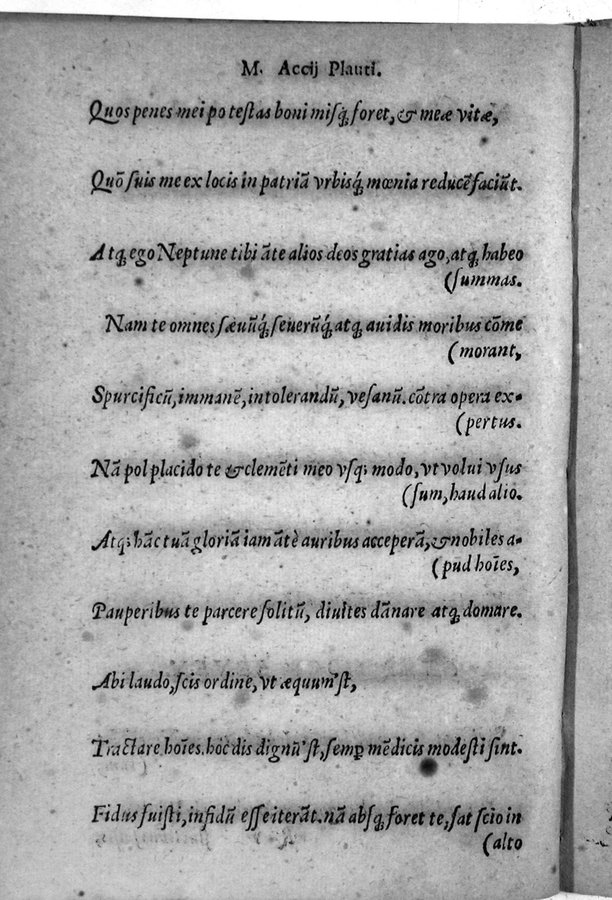 M. Accij Plauti.
Quos penes mei potestas boni misq́; foret, & meæ vitæ,
Quō suis me ex locis in patriā vrbisq́; mœnia reducē faciūt.
Atq; ego Neptune tibi āte alios deos gratias ago, atq; habeo
(summas.
Nam te omnes sæuūq́; seuerūq́; atq; auidis moribus cōme
(morant,
Spurcificū, immanē, intolerandū, vesanū. cōtra opera ex-
(pertus.
Nā pol placido te & clemēti meo vsq; modo, vt volui vsus
(sum, haud alio.
Atq; hāc tuā gloriā iam ātè auribus acceperā, & nobiles a-
(pud hoīes,
Pauperibus te parcere solitū, diuites dānare atq; domare.
Abi laudo, scis ordine, vt æquum'st,
Tractare hoīes. hoc dis dignū'st, semꝑ mēdicis modesti sint.
Fidus fuisti, infidū esse iterāt. nā absq; foret te, sat scio in
(alto